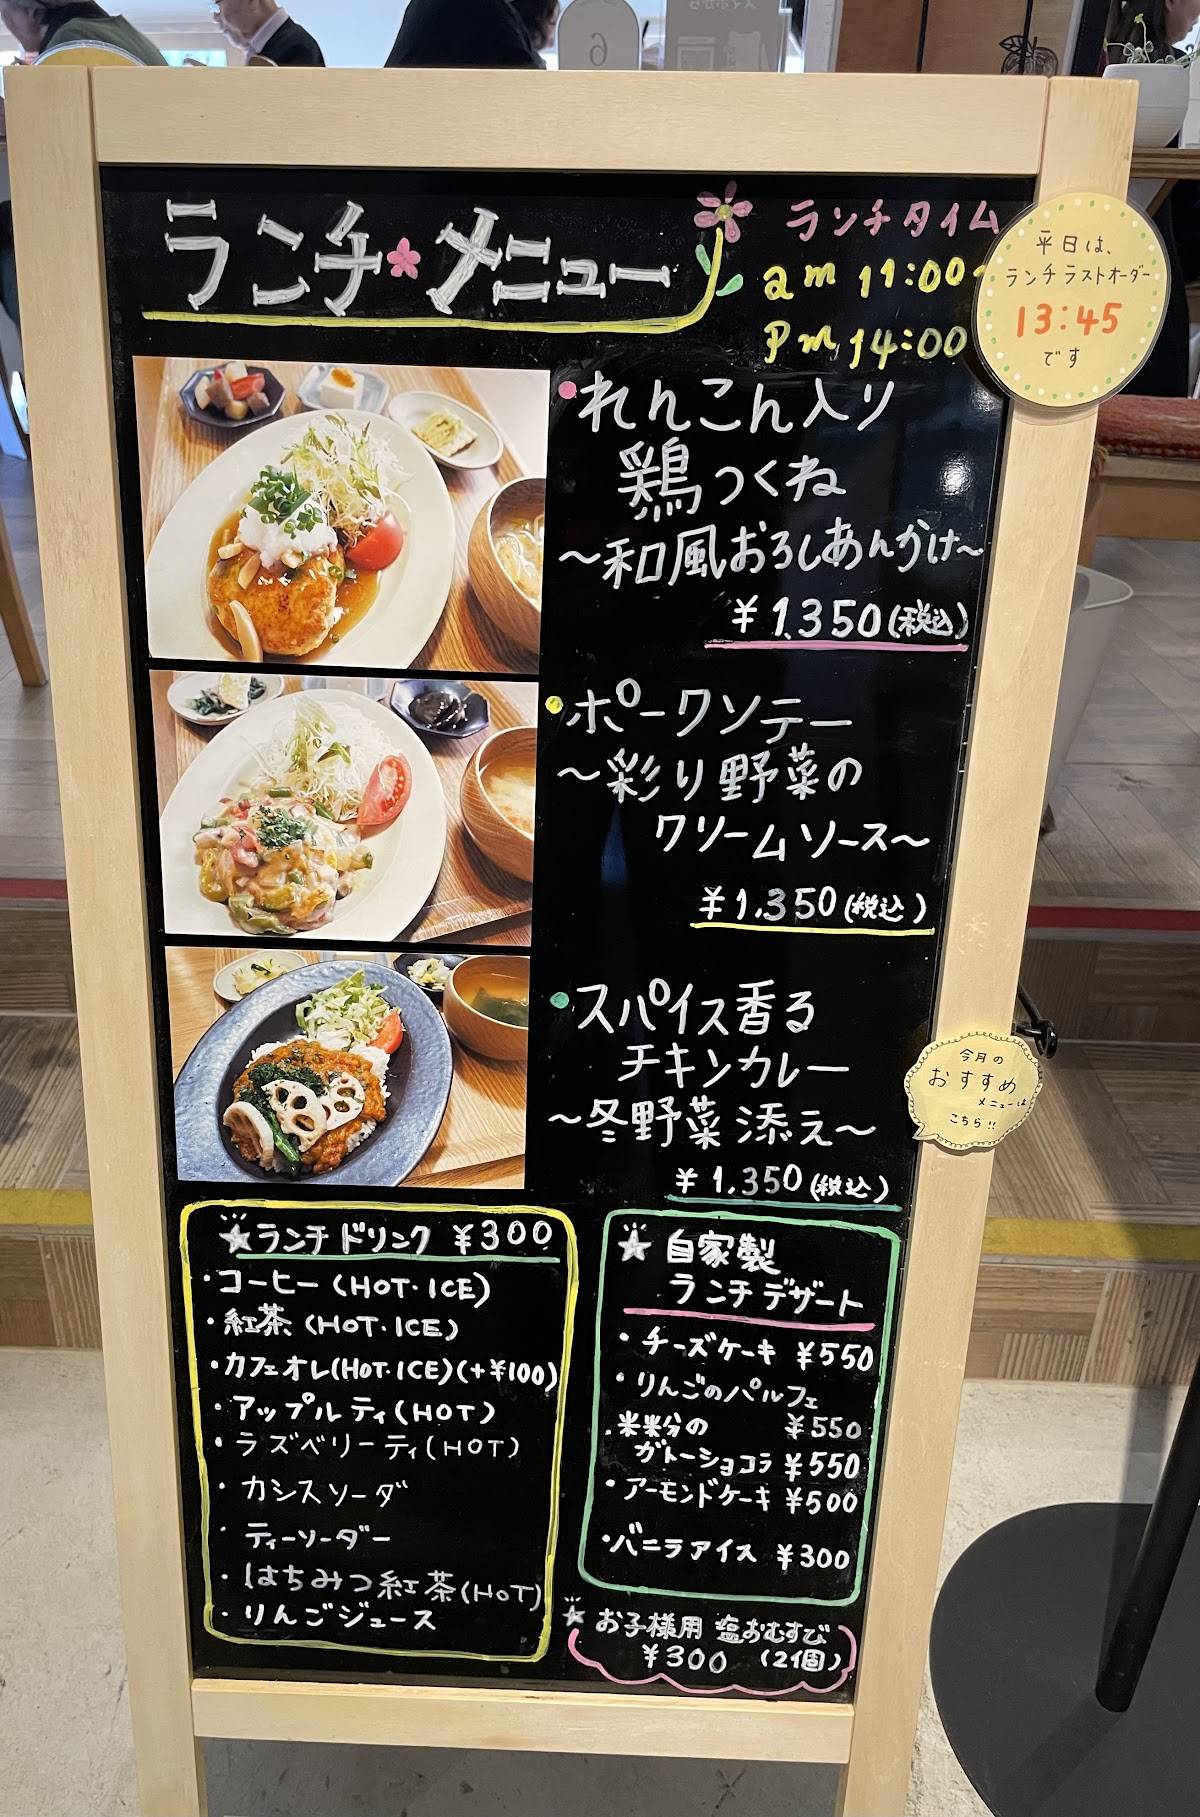 ランチ メニュー
ランチタイム
am 11:00~
pm 14:00
平日は、
ランチラストオーダー
13:45
です
・れんこん入り
鶏つくね
~和風おろしあんかけ~
¥1,350(税込)
・ポークソテー
~彩り野菜の
クリームソース~
¥1,350(税込)
・スパイス香る
チキンカレー
~冬野菜添え~
¥1,350(税込)
今月の
おすすめ
メニューは
こちら!!
★ランチドリンク ¥300
・コーヒー(HOT・ICE)
・紅茶(HOT・ICE)
・カフェオレ(HOT・ICE)(+¥100)
・アップルティ(HOT)
・ラズベリーティ(HOT)
・カシスソーダ
・ティーソーダー
・はちみつ紅茶(HOT)
・りんごジュース
★自家製
ランチデザート
・チーズケーキ ¥550
・りんごのパルフェ
¥550
・米粉の
ガトーショコラ ¥550
・アーモンドケーキ ¥500
・バニラアイス ¥300
★お子様用 塩おむすび
¥300 (2個)
6